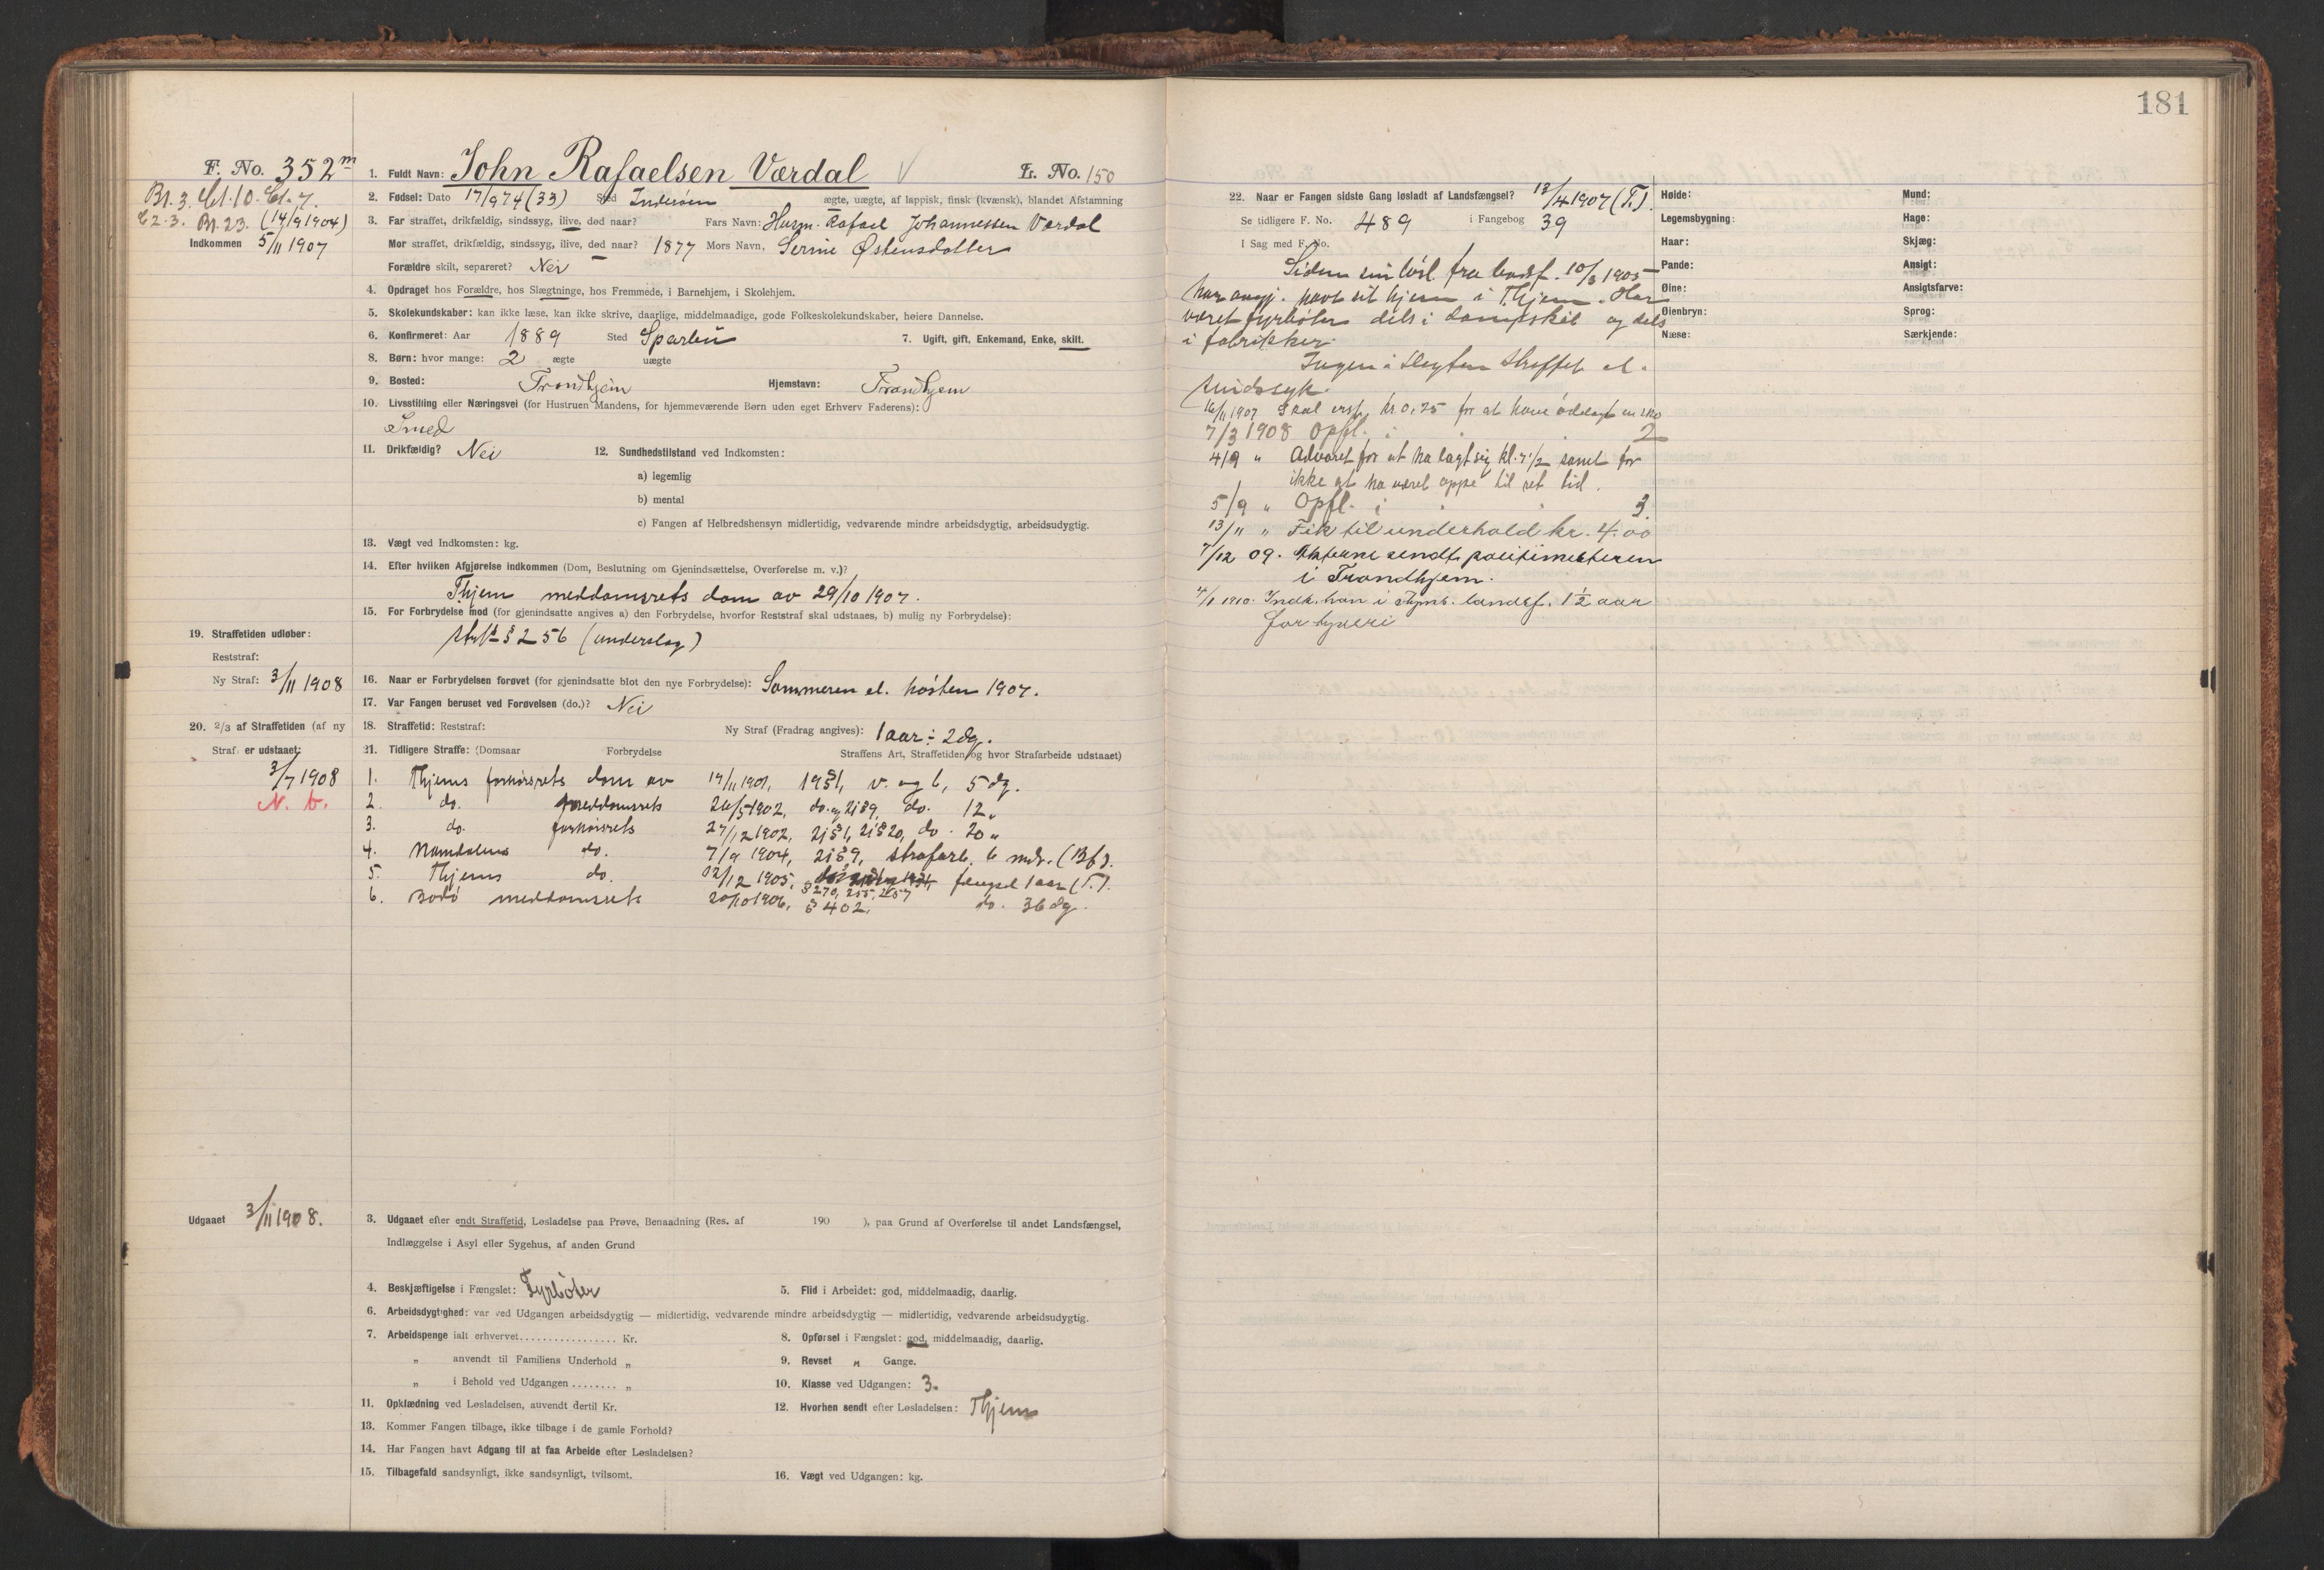 181
F. No. 352 m
Bl. 3. Cl. 10. Cl. 7.
C2-3. Bl. 23. (14/9 1904)
Indkommen 5/11 1907
1. Fuldt Navn: John Rafaelsen Værdal V L. No. 150
2. Fødsel: Dato 17/9 74 (33) Sted Inderøen ægte, uægte, af lappisk, finsk (kvænsk), blandet Afstamning
3. Far straffet, drikfældig, sindssyg, ilive, død naar? Fars Navn: Husm. Rafael Johannessen Værdal
Mor straffet, drikfældig, sindssyg, ilive, død naar? 1877 Mors Navn, Serine Østensdatter
Forældre skilt, separeret? Nei
4. Opdraget hos Forældre, hos Slægtninge, hos Fremmede, i Barnehjem, i Skolehjem.
5. Skolekundskaber: kan ikke læse, kan ikke skrive, daarlige, middelmaadige, gode Folkeskolekundskaber, høiere Dannelse.
6. Konfirmeret: Aar 1889 Sted Sparbu 7. Ugift, gift, Enkemand, Enke, skilt.
8. Børn: hvor mange: 2 ægte uægte
9. Bosted: Trondhjem Hjemstavn: Trondhjem
10. Livsstilling eller Næringsvei (for Hustruen Mandens, for hjemmeværende Børn uden eget Erhverv Faderens):
Smed
11. Drikfældig? Nei 12. Sundhedstilstand ved Indkomsten:
a) legemlig
b) mental
c) Fangen af Helbredshensyn midlertidig, vedvarende mindre arbeidsdygtig, arbeidsudygtig.
13. Vægt ved Indkomsten: kg.
14. Efter hvilken Afgjørelse indkommen (Dom, Beslutning om Gjenindsættelse, Overførelse m. v.)?
Thjem meddomsrets dom av 29/10 1907.
15. For Forbrydelse mod (for gjenindsatte angives a) den Forbrydelse, hvorfor Reststraf skal udstaaes, b) mulig ny Forbrydelse):
§ 256 (underslag)
19. Straffetiden udløber:
Reststraf:
Ny Straf: 3/11 1908
16. Naar er Forbrydelsen forøvet (for gjenindsatte blot den nye Forbrydelse): Sommeren el. høsten 1907.
17. Var Fangen beruset ved Forøvelsen (do.)? Nei
20. 2/3 af Straffetiden (af ny Straf) er udstaaet:
3/7 1908
N. b.
18. Straffetid: Reststraf: Ny Straf (Fradrag angives): 1 aar ÷ 2 dg.
21. Tidligere Straffe: (Domsaar Forbrydelse Straffens Art, Straffetiden og hvor Strafarbeide udstaaet)
1. Thjems forhørsrets dom av 19/11 1901, 19§1, v. og b, 5 dg.
2. do. meddomsrets 26/5 1902, do. og 21§9, do. 12 "
3. do. forhørsrets 27/12 1902, 21§1, 21§20, do. 20 "
4. Namdalens do. 7/9 1904, 21§9, strafarb. 6 mdr. (Bf).
5. Thjems do. 22/12 1905, § 270, 255, 257 fængsel 1 aar (T.).
6. Bodø meddomsrets 20/10 1906, § 402, do. 36 dg.
Udgaaet 3/11 1908.
3. Udgaaet efter endt Straffetid, Løsladelse paa Prøve, Benaadning (Res. af 190 ), paa Grund af Overførelse til andet Landsfængsel,
Indlæggelse i Asyl eller Sygehus, af anden Grund
4. Beskjæftigelse i Fængslet: Fyrbøter 5. Flid i Arbeidet: god, middelmaadig, daarlig.
6. Arbeidsdygtighed: var ved Udgangen arbeidsdygtig — midlertidig, vedvarende mindre arbeidsdygtig — midlertidig, vedvarende arbeidsudygtig.
7. Arbeidspenge ialt erhvervet................. Kr. 8. Opførsel i Fængslet: god, middelmaadig, daarlig.
" anvendt til Familiens Underhold " 9. Revset " Gange.
" i Behold ved Udgangen ........ " 10. Klasse ved Udgangen: 3.
11. Opklædning ved Løsladelsen, anvendt dertil Kr. 12. Hvorhen sendt efter Løsladelsen: Thjem
13. Kommer Fangen tilbage, ikke tilbage i de gamle Forhold?
14. Har Fangen havt Adgang til at faa Arbeide efter Løsladelsen?
15. Tilbagefald sandsynligt, ikke sandsynligt, tvilsomt. 16. Vægt ved Udgangen: kg.
22. Naar er Fangen sidste Gang løsladt af Landsfængsel? 13/4 1907 (T.).
Se tidligere F. No. 489 i Fangebog 39
I Sag med F. No.
Siden sin løsl. fra bodsf. 10/3 1905
har angj. havt sit hjem i Thjem. Har
været fyrbøter dels i dampskib og dels
i fabrikker.
Ingen i slegten straffet el.
sindssyk.
16/11 1907 Skal erst. kr. 0,25 for at have ødelagt en sko
7/3 1908 Opfl. i " " 2
4/9 " Advaret for at ha lagt sig kl. 7 1/2 samt for
ikke at ha været oppe til ret tid.
5/9 " Opfl. i " " 3
13/11 " Fik til underhold kr. 4.00
7/12 09. Akterne sendt politimesteren
i Trondhjem.
1910. Indk. han i Thjms. landsf. 1 1/2 aar
for tyveri
Høide:
Legemsbygning:
Haar:
Pande:
Øine:
Øienbryn:
Næse:
Mund:
Hage:
Skjæg:
Ansigt:
Ansigtsfarve:
Sprog:
Særkjende: